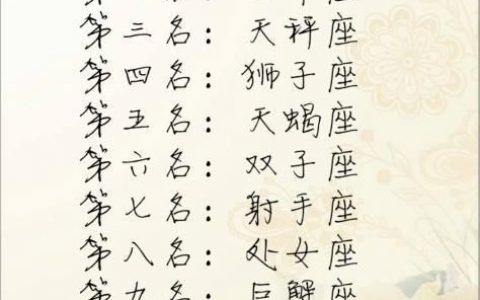 第三名：天秤座
第四名：狮子座
第五名：天蝎座
第六名：双子座
第七名：射手座
第八名：处女座
第九名：巨解座